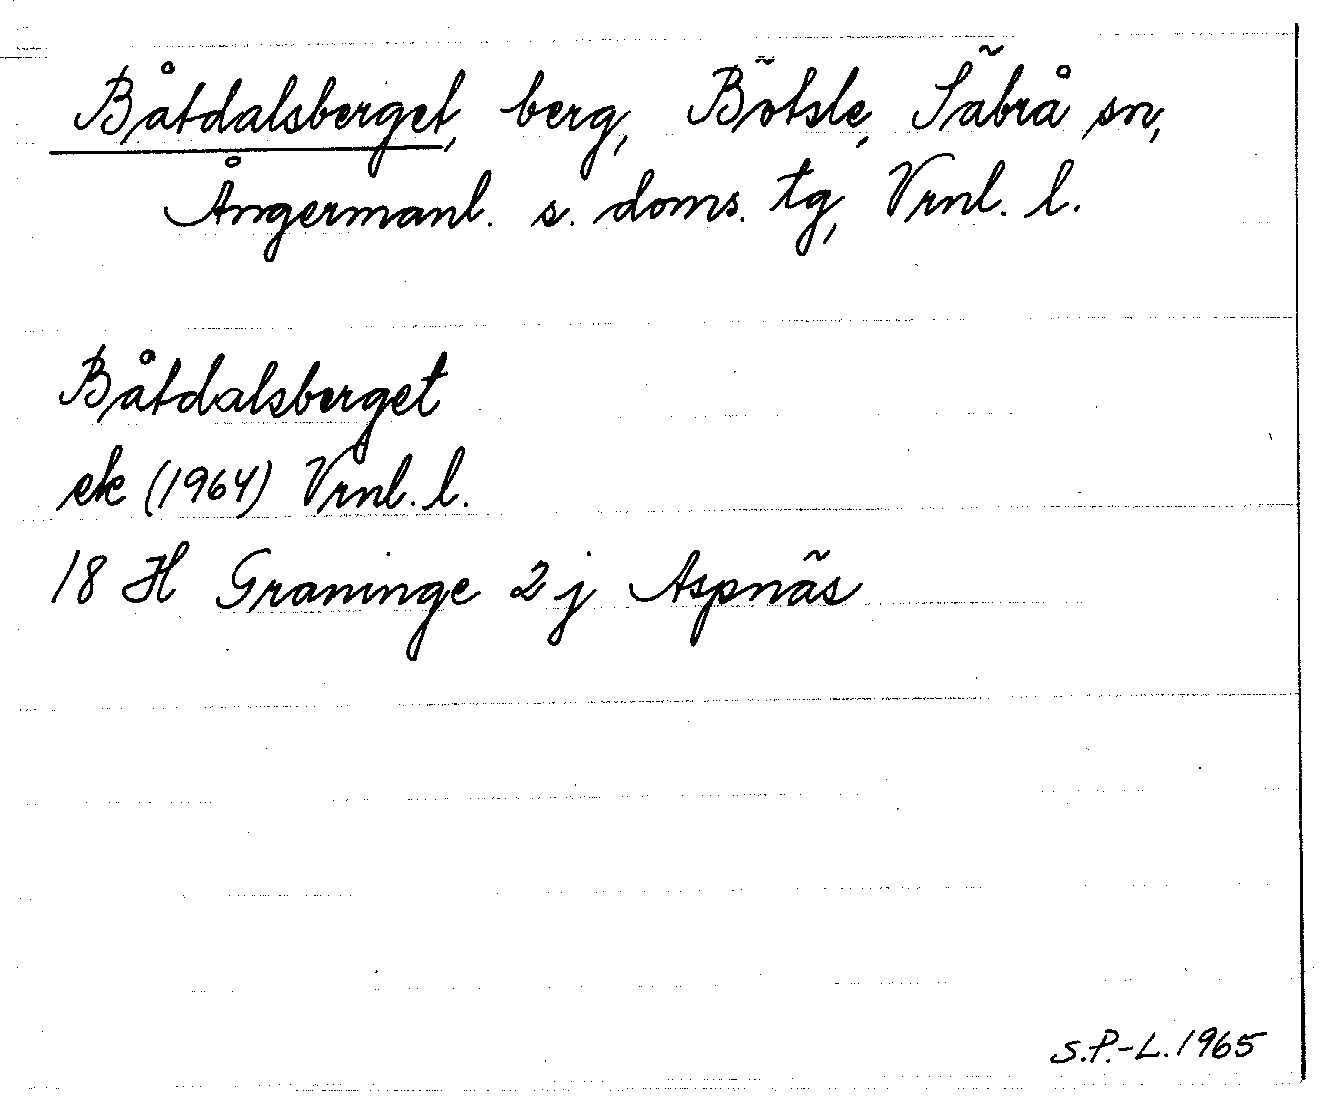 Båtdalsberget, berg, Bötsle, Säbrå sn,
Ångermanl. s. doms. tg, Vrnl. l.
Båtdalsberget
ek (1964) Vrnl. l.
18 H Graninge 2 j Aspnäs
S.P.-L. 1965